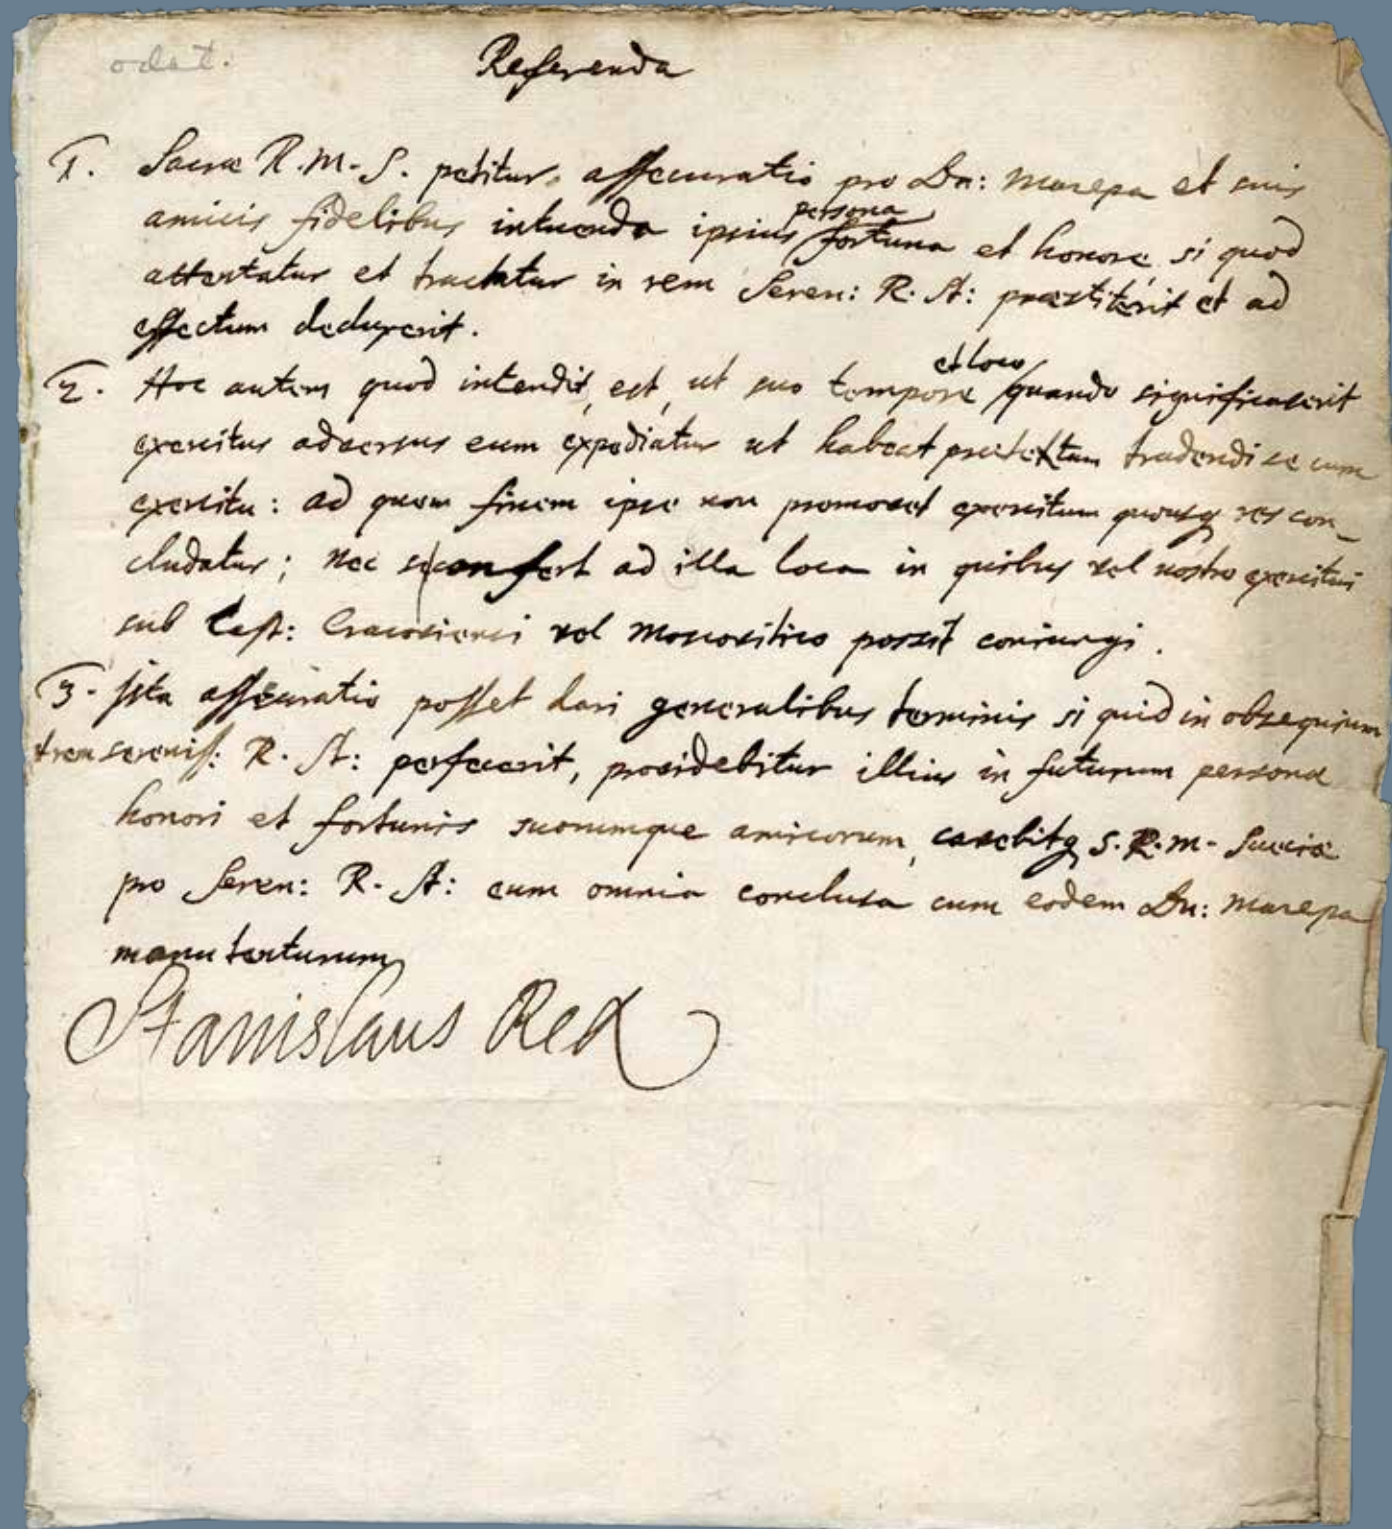 odat.
Referenda
1. Sacræ R. M. S. petitur assecuratio pro Dn: Mazepa et suis
amicis fidelibus intuenda ipsius fortuna et honore, si quod
persona
attentatur et tractatur in rem Seren: R. A: præstiterit et ad
effectum deduxerit.
2. Hoc autem quod intendit, est, ut suo tempore quando significaverit
et loco
exercitus adversus eum expediatur ut habeat prætextum tradendi se cum
exercitu: ad quem finem ipse non promovet exercitum quousq res con_
cludatur; nec se confert ad illa loca in quibus vel nostro exercitui
sub Cast: Cracoviensi vel Moscovitico possit coniungi.
3. Ista assecuratio posset dari generalibus terminis si quid in obsequium
et rem sereniss: R. A: perfecerit, providebitur illius in futurum personæ
honori et fortunis suorumque amicorum, cavebitq S. R. M. Sueciæ
pro Seren: R. A: eum omnia conclusa cum eodem Dn: Mazepa
manutenturum
Stanislaus Rex